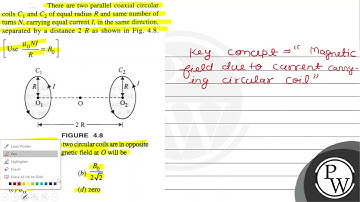 There are two parallel coaxial circular
coils C₁ and C₂ of equal radius R and same number of
turns N, carrying equal current I, in the same direction,
separated by a distance 2 R as shown in Fig. 4.8.
[Use μ₀NI/R = B₀]
C₁ C₂
R I R I
O₁ O O₂
2 R
FIGURE 4.8
two circular coils are in opposite
gnetic field at O will be
(b) B₀/2√2
(d) zero
Key concept ⇒ "Magnetic
field due to current carry-
ing circular coil"
PW